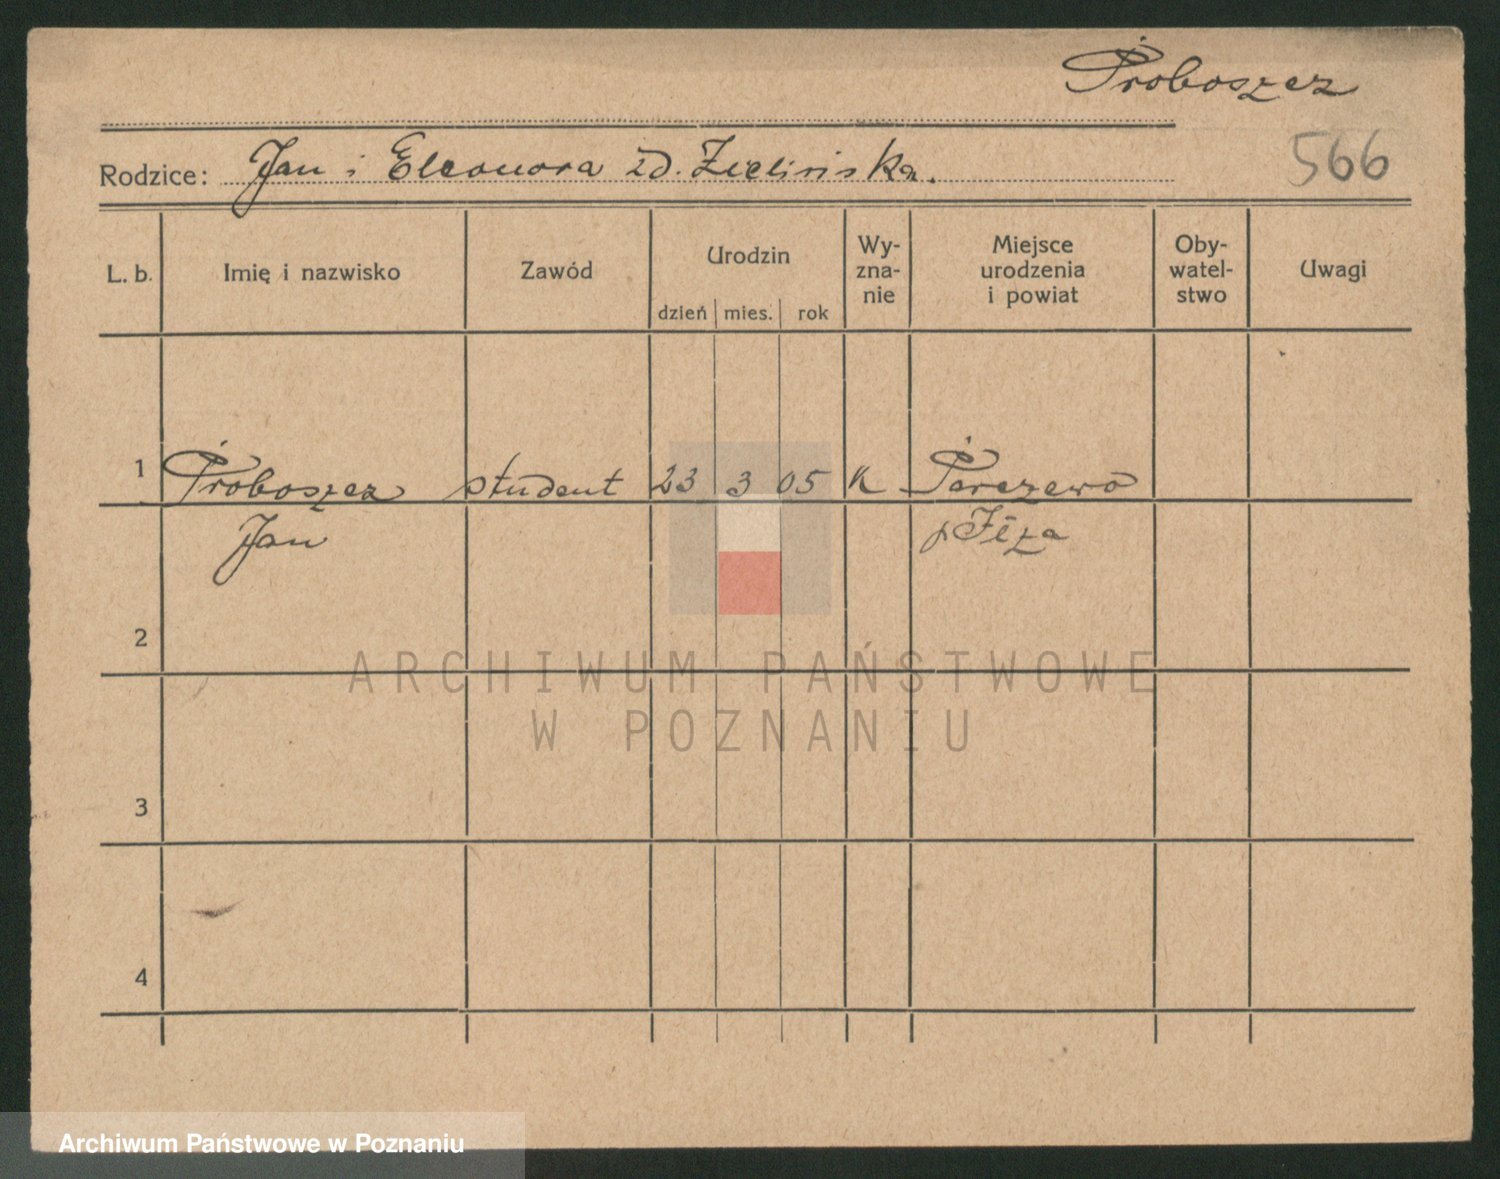 Proboszcz
Rodzice: Jan i Eleonora zd. Zielińska.
566
L. b. Imię i nazwisko Zawód Urodzin dzień mies. rok Wy-zna-nie Miejsce urodzenia i powiat Oby-watel-stwo Uwagi
1 Proboszcz student 23 3 05 k Parczewo
Jan
2
3
4
ARCHIWUM PAŃSTWOWE
W POZNANIU
Archiwum Państwowe w Poznaniu